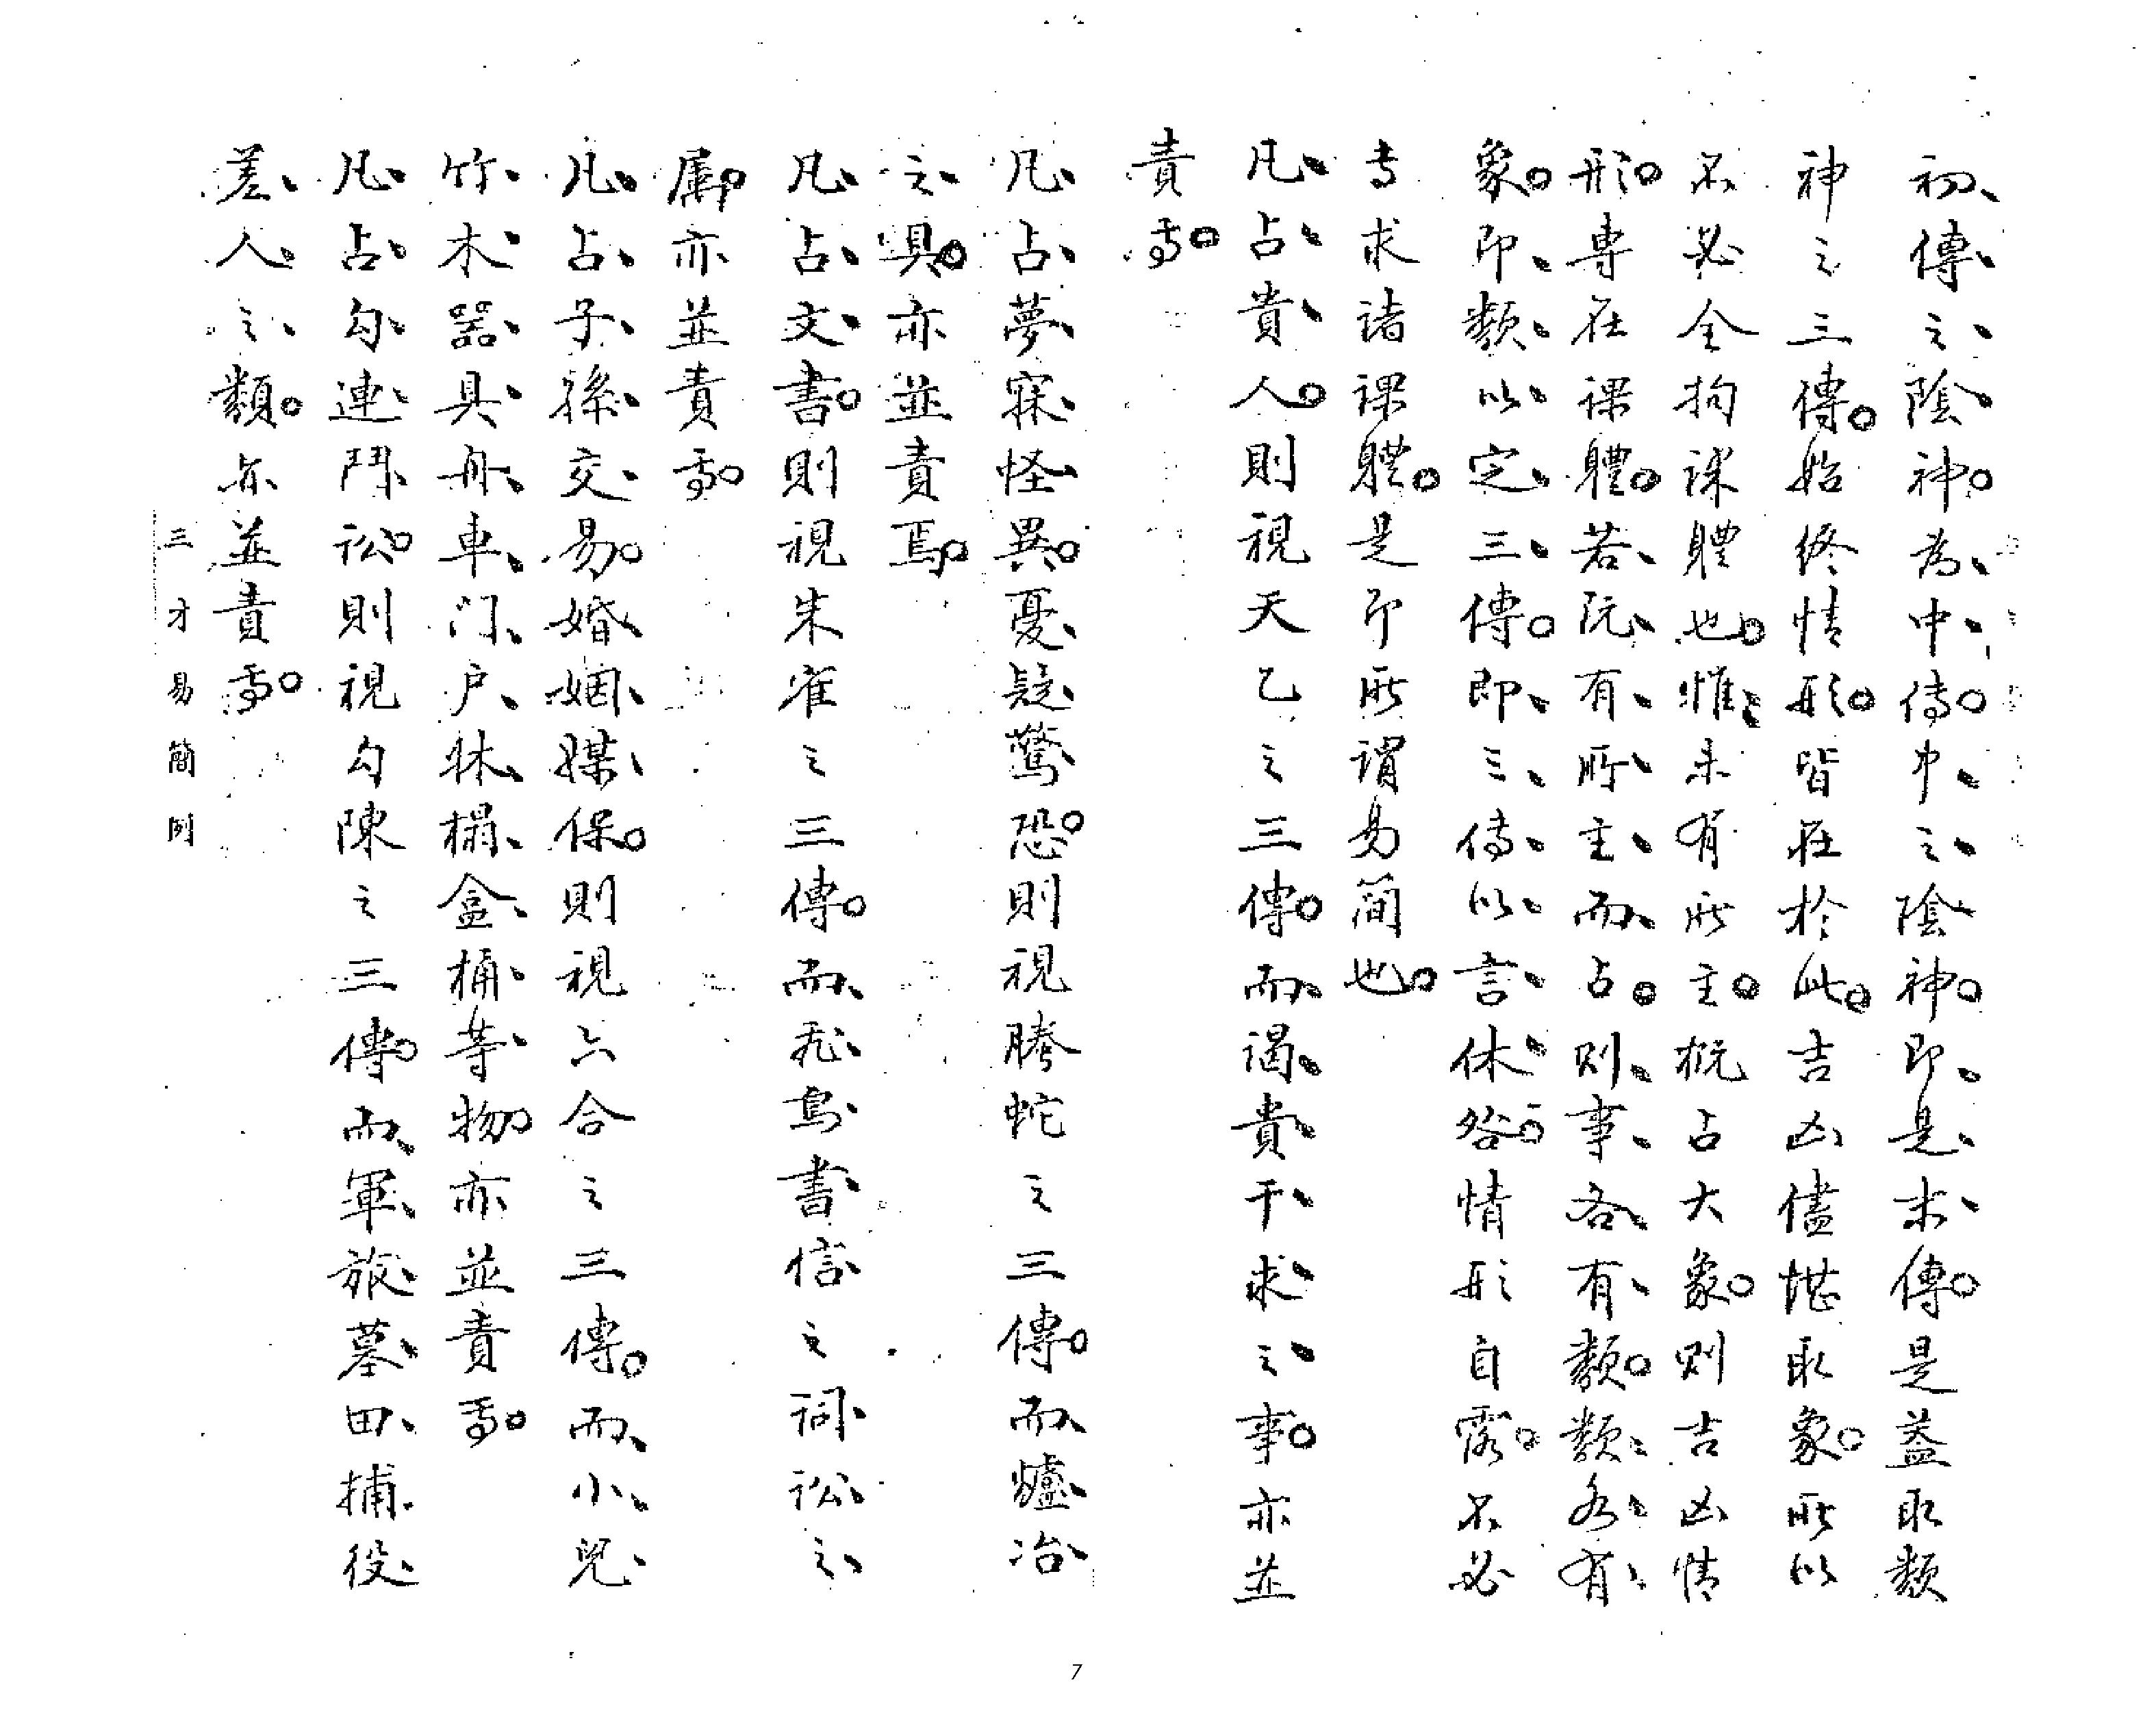 初傳之陰神為中傳中之陰神即是末傳是盖取類
神之三傳始終情形皆在於此吉凶儘堪取象所以
不必全拘課體也惟未有所主概占大象则吉凶情
形專在課體若既有所主而占则事各有類類各有
象即類以定三傳即三傳以言休咎情形自露不必
专求諸課體是即所謂易簡也
凡占貴人則視天乙之三傳而謁貴干求之事亦並
責焉
凡占夢寐怪異憂疑驚恐則視騰蛇之三傳而爐冶
之具亦並責焉
凡占文書則視朱雀之三傳而飛鳥書信之詞訟之
屬亦並責焉
凡占子孫交易婚姻媒保則視六合之三傳而小兒
竹木器具舟車门户牀榻盒桶等物亦並責焉
凡占勾連鬥訟則視勾陳之三傳而軍旅墓田捕役
差人之類亦並責焉
三才易簡例
7